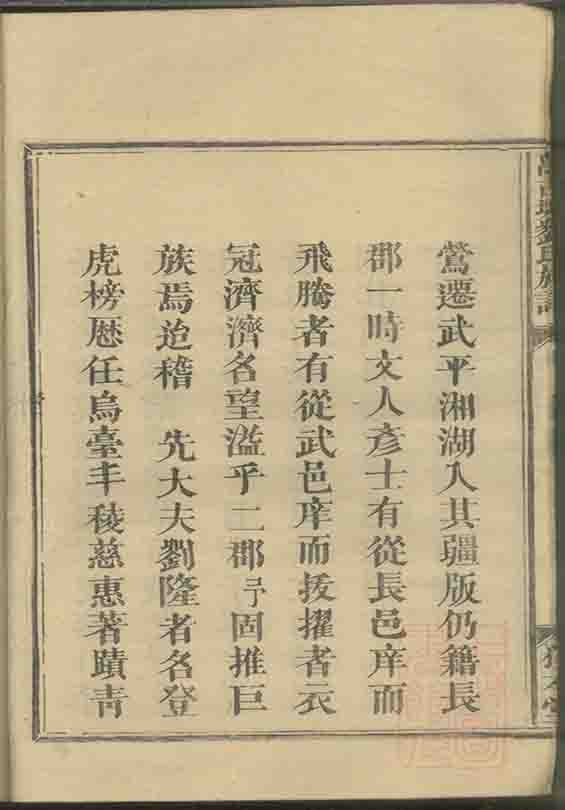 劉氏族譜
鶯遷武平湘湖入其疆版仍籍長
郡一時文人彥士有從長邑庠而
飛騰者有從武邑庠而拔擢者衣
冠濟濟名望溢乎二郡 固推巨
族焉迨稽 先大夫劉隆者名登
虎榜歷任烏臺丰稜慈惠著蹟青